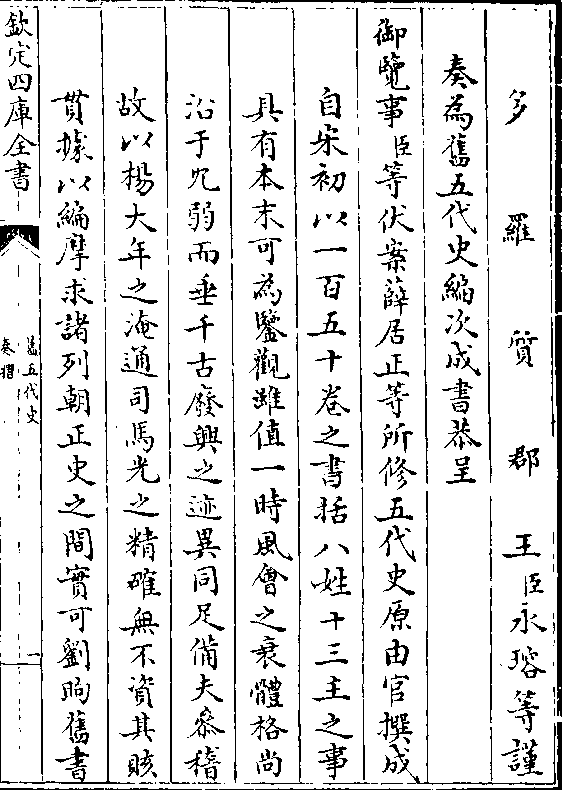 多羅質郡王臣永瑢等謹
奏為舊五代史編次成書恭呈
御覽事臣等伏案薛居正等所修五代史原由官撰成
自宋初以一百五十卷之書括八姓十三主之事
具有本末可為鑒觀雖值一時風會之衰體格尚
沿于冗弱而垂千古廢興之迹異同足備夫參稽
故以楊大年之淹通司馬光之精確無不資其賅
貫據以編摩求諸列朝正史之間實可劉昫舊書
欽定四庫全書
舊五代史
奏摺
一